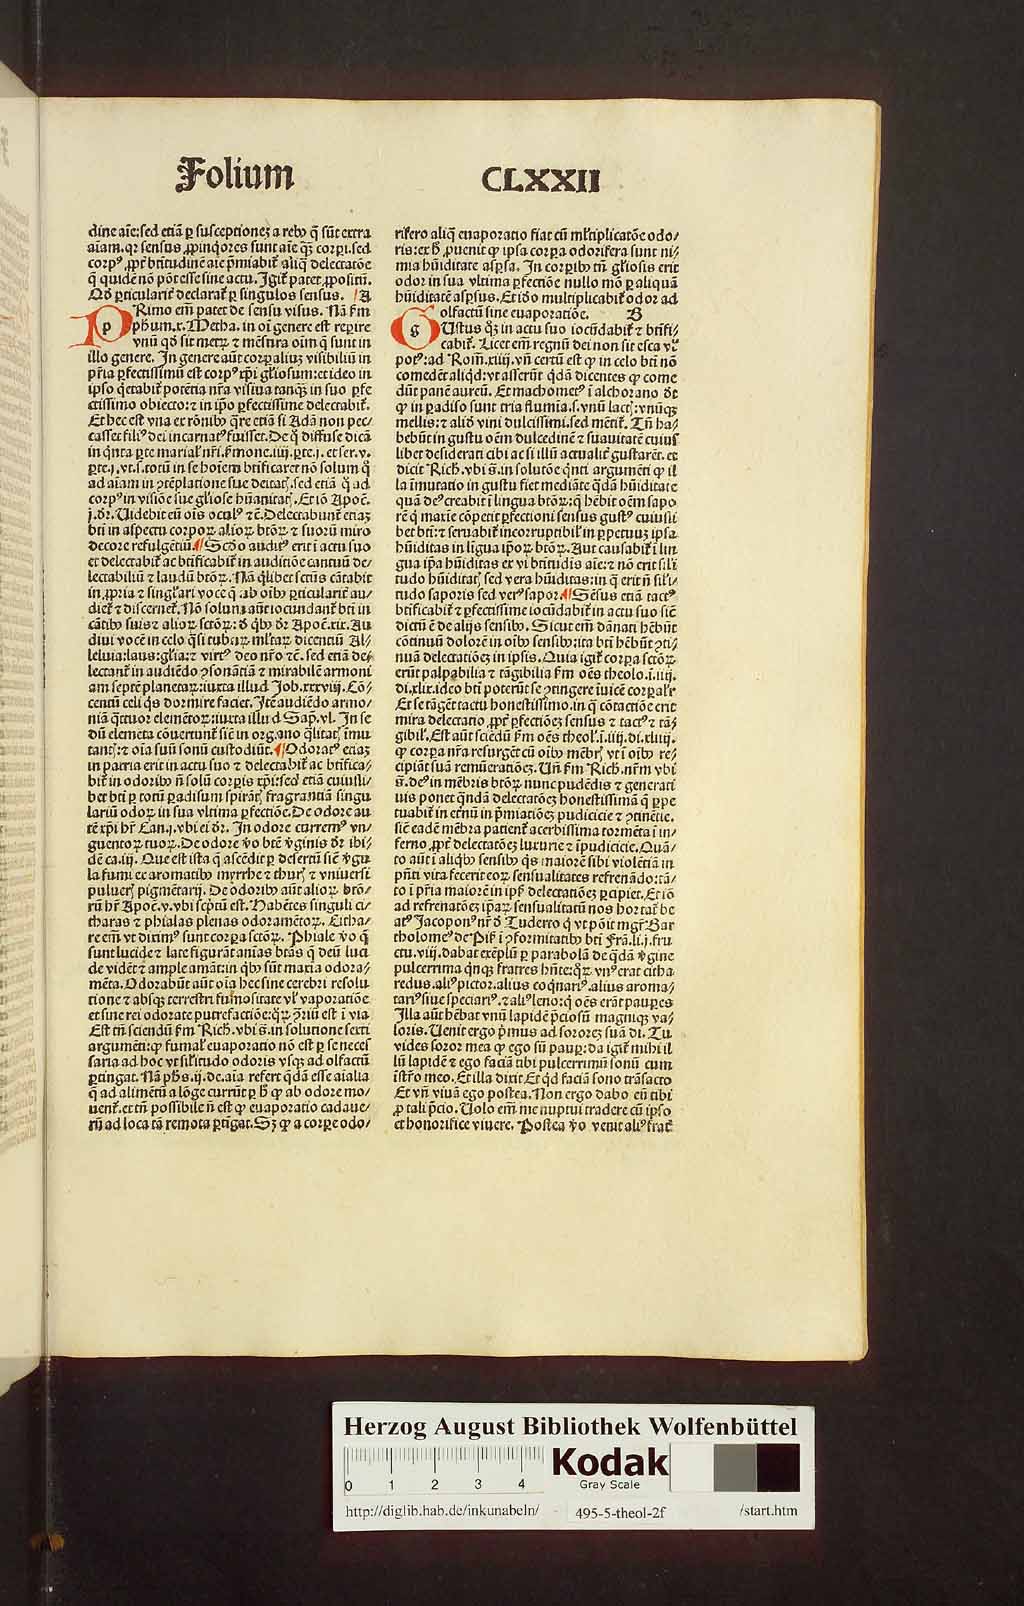 Folium CLXXII
dine aīe: sed etiā ꝑ susceptionez a rebꝰ q̄ sūt extra
aīam. qꝛ sensus ꝓpinq̄ores sunt aīe qꝫ corpi. sed
corpꝰ ꝓpṫ btītudinē aīe p̄miabiṫ aliq̄ delectatōe
q̄ quidē nō pōt esse sine actu. Igiṫ patet ꝓpositū.
Qd̄ ꝑticulariṫ declaraṫ ꝑ singulos sensus. A
PRimo em̄ patet de sensu visus. Nā ẜm
ph̄um. x. Metha. in oī genere est reꝑire
vnū qd̄ sit metꝝ ⁊ mēsura oīm q̄ sunt in
illo genere. In genere aūt corpꝝ aliuz visibiliū in
pr̄ia ꝑfectissimū est corpꝰ xp̄i gl̄iosum: et ideo in
ipso q̄etabiṫ potētia nr̄a visiua tanqꝫ in suo ꝑfe
ctissimo obiecto: ⁊ in ip̄o ꝑfectissime delectabiṫ.
Et hec est vna ex rōnibꝰ q̄re etiā si Adā non pec-
casset filiꝰ dei incarnatꝰ fuisset. De q̊ diffuse dicā
in q̄nta ꝑte marial' nr̄i. ẜmone. iiij. ꝑte. j. et ser. v.
ꝑte. j. vt. s. totū in se hoīem btīficaret nō solum q̊
ad aīam in ↄtēplatione sue deitatꝭ. sed etiā q̊ ad
corpꝰ in visiōe sue gl̄iose hūanitatꝭ. Et iō Apoc̄.
j. dr̄. Uidebit eū oīs oculꝰ ⁊c̄. Delectabunṫ etiaz
bti in aspectu corpoꝝ alioꝝ btōꝝ ⁊ suorū miro
decore refulgētiū. ¶ Scd̄o auditꝰ erit ī actu suo
et delectabiṫ ac btīficabiṫ in auditiōe cantuū de-
lectabiliū ⁊ laudū btōꝝ. Nā q̄libet sctūs cātabit
in ꝓpria ⁊ singl'ari voce q̄ ab oībꝰ ꝑticulariṫ au-
dieṫ ⁊ discerneṫ. Nō solum aūt iocundanṫ bti in
cātibꝰ suis ⁊ alioꝝ sctōꝝ: d̄ qbꝰ dr̄ Apoc̄. xix. Au
diui vocē in celo q̄si tubaꝝ ml'taꝝ dicentiū Al-
leluia: laus: gl̄ia: ⁊ virtꝰ deo nr̄o ⁊c̄. sed etiā de-
lectanṫ in audiēdo ↄsonātiā ⁊ mirabilē armoni
am septē planetaꝝ: iuxta illud Job. xxxviij. Cō-
centū celi q̄s dormire faciet. Itē audiēdo armo-
niā q̄ttuor elemētoꝝ: iuxta illud Sap̄. vl. In se
dū elemēta cōuertunṫ sic̄ in organo q̄litatꝭ īmu
tantꝭ: ⁊ oīa suū sonū custodiūt. ¶ Odoratꝰ etiaz
in patria erit in actu suo ⁊ delectabiṫ ac btīfica-
biṫ in odoribꝰ n̄ solū corpis xp̄i: sed etiā cuiusli-
bet bti ꝑ totū ꝑadisum spirātꝭ fragrantiā singu
lariū odoꝝ in sua vltima ꝑfectiōe. De odore au
tē xp̄i hr̄ Can. j. vbi ei dr̄. In odore curremꝰ vn-
guentoꝝ tuoꝝ. De odore v̊o btē v̊ginis dr̄ ibi-
dē ca. iij. Que est ista q̄ ascēdit ꝑ desertū sic̄ v̊gu
la fumi ex aromatibꝰ myrrhe ⁊ thurꝭ ⁊ vniuersi
pulueꝭ pigmētarij. De odoribꝰ aūt alioꝝ btō-
rū hr̄ Apoc̄. v. vbi scptū est. Habētes singuli ci-
tharas ⁊ phialas plenas odoramētoꝝ. Citha-
re em̄ vt dixim̄ꝰ sunt corpa sctōꝝ. Phiale v̊o q̄
sunt lucide ⁊ late figurāt aīas btās q̄ deū luci
de vidēt ⁊ ample amāt: in qbꝰ sūt maxia odora-
mēta. Odorabūt aūt oīa hec sine cerebri resolu
tione ⁊ absqꝫ terrestri fumositate vl' vaporatiōe
et sine rei odorate putrefactiōe: qꝝ ↄriū est ī via
Est tn̄ sciendū ẜm Rich. vbi s̄. in solutione sexti
argumēti: ꝙ fumal' euaporatio nō est ꝑ se neces
saria ad hoc vt sil'itudo odoris vsqꝫ ad olfactū
ꝑtingat. Nā ph̄s. ij. de. aīa refert q̄dā esse aīalia
q̄ ad alimētū a lōge currūt ꝑ h̄ ꝙ ab odore mo-
uenṫ. et tn̄ possibile n̄ est ꝙ euaporatio cadaue-
rū ad loca tā remota ꝑtīgat. Sꝫ ꝙ a corpe odo-
rifero aliq̄ euaporatio fiat cū ml'tiplicatōe odo-
ris: ex h̄ ꝓuenit ꝙ ipsa corpa odorifera sunt ni-
mia hūiditate asꝑsa. In corpibꝰ tn̄ gl̄iosis erit
odor in sua vltima ꝑfectiōe nullo mō ꝑ aliquā
hūiditatē asꝑsus. Et iō multiplicabiṫ odor ad
olfactū sine euaporatiōe. B
GUstus qꝫ in actu suo iocūdabiṫ ⁊ btīfi-
cabiṫ. Licet em̄ regnū dei non sit esca vl'
potꝰ: ad Rom̄. xiiij. vn̄ certū est ꝙ in celo bti nō
comedēt aliqd: vt asserūt q̄dā dicentes ꝙ come
dūt panē aureū. Et machometꝰ ī alchorano dt̄
ꝙ in ꝑadiso sunt tria flumīa. s. vnū lactꝭ: vnūqꝫ
mellis: ⁊ aliō vini dulcissimi. sed mētiṫ. Tn̄ ha-
bebūt in gustu oēm dulcedinē ⁊ suauitatē cuius
libet desiderati cibi ac si illū actualiṫ gustarēt. et
dicit Rich. vbi s̄. in solutōe q̄nti argumēti ꝙ il
la īmutatio in gustu fiet mediāte q̄dā hūiditate
quā deꝰ creabit ī lingua btōꝝ: q̄ hēbit oēm sapo
rē q̄ maxīe cōpetit ꝑfectioni sensus gustꝰ cuiusli
bet bti: ⁊ seruabiṫ incorruptibiliṫ in ꝑpetuuz ipsa
hūiditas in līgua ip̄oꝝ btōꝝ. Aut causabiṫ ī lin
gua ip̄a hūiditas ex vi btītudis aīe: ⁊ nō erit sil'i
tudo hūiditatꝭ sed vera hūiditas: in q̄ erit n̄ sil'i-
tudo saporis sed verꝰ sapor. ¶ Sēsus etiā tactꝰ
btīficabiṫ ⁊ ꝑfectissime iocūdabiṫ in actu suo sic̄
dictū ē de alijs sensibꝰ. Sicut em̄ dānati hēbūt
cōtinuū dolorē in oībꝰ sensibꝰ: ita bti hēbūt ↄti-
nuā delectatiōez in ipsis. Quia igiṫ corpa sctōꝝ
erūt palpabilia ⁊ tāgibilia ẜm oēs theolo. i. iiij.
di. xlix. ideo bti poterūt se ↄtingere īuicē corpal'r
Et se tāgēt tactu honestissimo. in q̊ cōtactiōe erit
mira delectatio ꝓpṫ ꝑfectiōez sensus ⁊ tactꝰ ⁊ tā-
gibil'. Est aūt sciēdū ẜm oēs theol'. i. iiij. di. xliiij.
ꝙ corpa nr̄a resurgēt cū oībꝰ mēbrꝭ vt ī oībꝰ re-
cipiāt suā remūeratiōez. Un̄ ẜm Rich. nr̄m vbi
s̄. deꝰ in mēbris btōꝝ nunc pudēdis ⁊ generati
uis ponet q̄ndā delectatōez honestissimā q̄ ꝑpe
tuabiṫ in etnū in p̄miatiōez pudicicie ⁊ ↄtinētie.
sic̄ eadē mēbra patienṫ acerbissima tormēta ī in-
ferno, ꝓpṫ delectatōez luxurie ⁊ īpudicicie. Quā-
to aūt ī aliqbꝰ sensibꝰ q̄s maiorē sibi violētiā in
pn̄ti vita fecerit eoꝝ sensualitates refrenādo: tā-
to ī pr̄ia maiorē in ip̄s delectatiōez ꝑcipiet. Et iō
ad refrenatōez ip̄aꝝ sensualitatū nos hortaṫ be
atꝰ Jacoponꝰ nr̄ d̄ Tuderto q̄ vt pōit mgr̄ Bar
tholomeꝰ de Pis' ī ↄformitatibꝰ bti Frā. li. j. fru
ctu. viij. dabat exēplū ꝑ parabolā de q̄dā v̊gine
pulcerrima q̄nqꝫ fratres hn̄te: qꝝ vnꝰ erat citha
redus. aliꝰ pictor. alius coq̄nariꝰ. alius aroma-
tariꝰ siue speciariꝰ. ⁊ aliꝰ leno: q̄ oēs erāt pauꝑes
Illa aūt hēbat vnū lapidē p̄ciosū magniqꝫ va-
loris. Uenit ergo p̄mus ad sororez suā di. Tu
vides soror mea ꝙ ego sū pauꝑ: da igiṫ mihi il
lū lapidē ⁊ ego faciā tibi pulcerrimū sonū cum
īstr̄o meo. Et illa dixit Et qd faciā sono trāsacto
Et vn̄ viuā ego postea. Non ergo dabo eū tibi
ꝓ tali p̄cio. Uolo em̄ me nuptui tradere cū ipso
et honorifice viuere. Postea v̊o venit aliꝰ fraṫ
Herzog August Bibliothek Wolfenbüttel
0 1 2 3 4
Kodak
Gray Scale
http://diglib.hab.de/inkunabeln/ - 495-5-theol-2f /start.htm